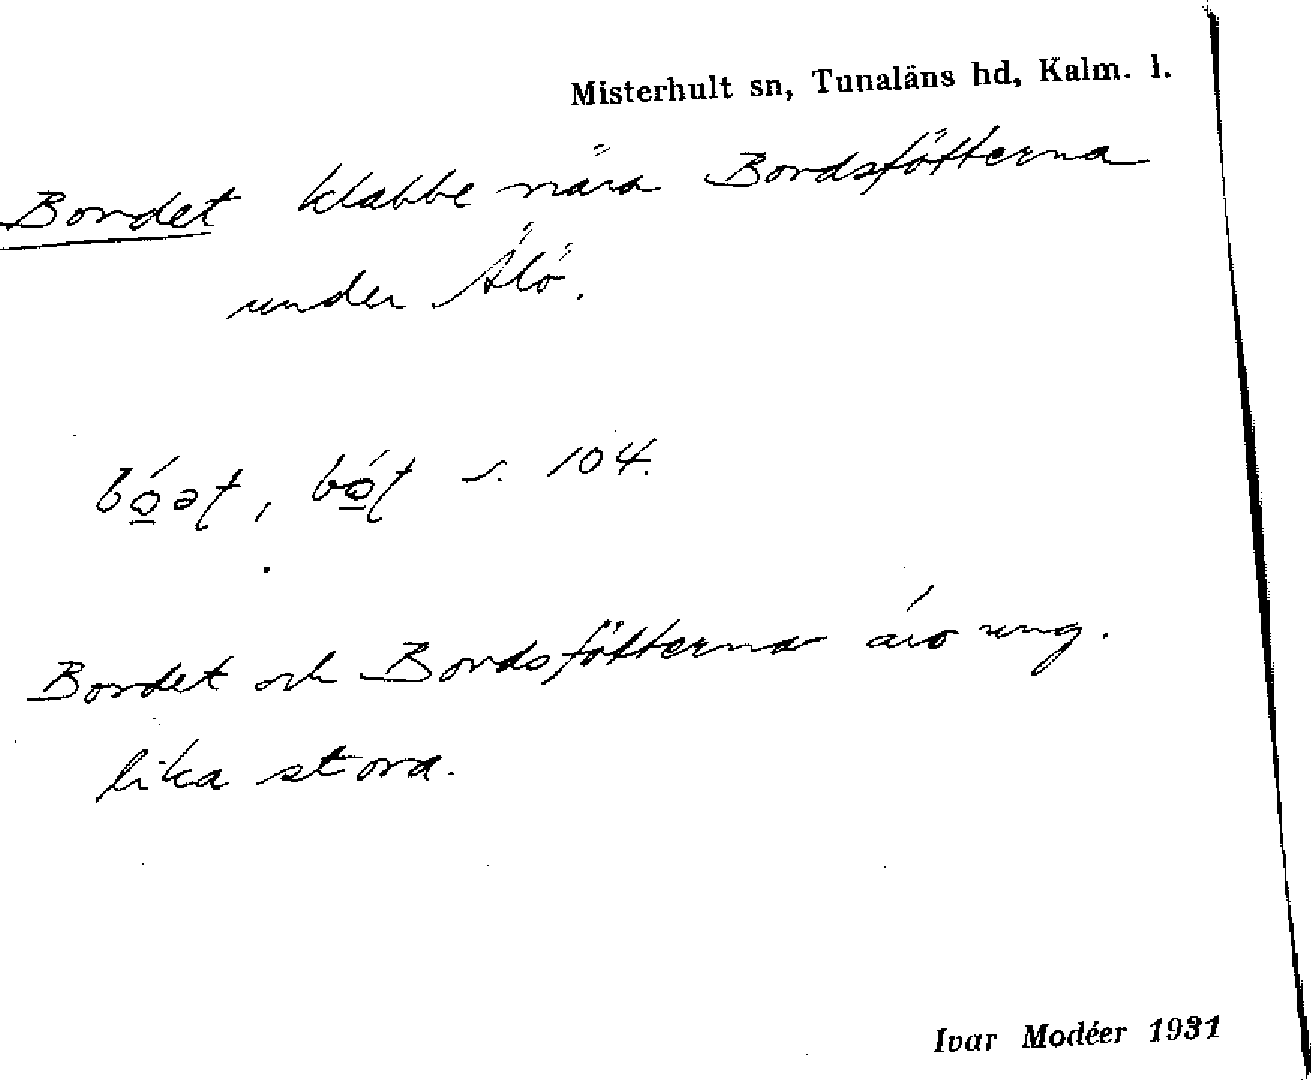 Misterhult sn, Tunaläns hd, Kalm. l.
Bordet klabbe nära Bordsfötterna
under Älö.
s. 104.
Bordet och Bordsfötterna äro ung.
lika stora.
Ivar Modéer 1931